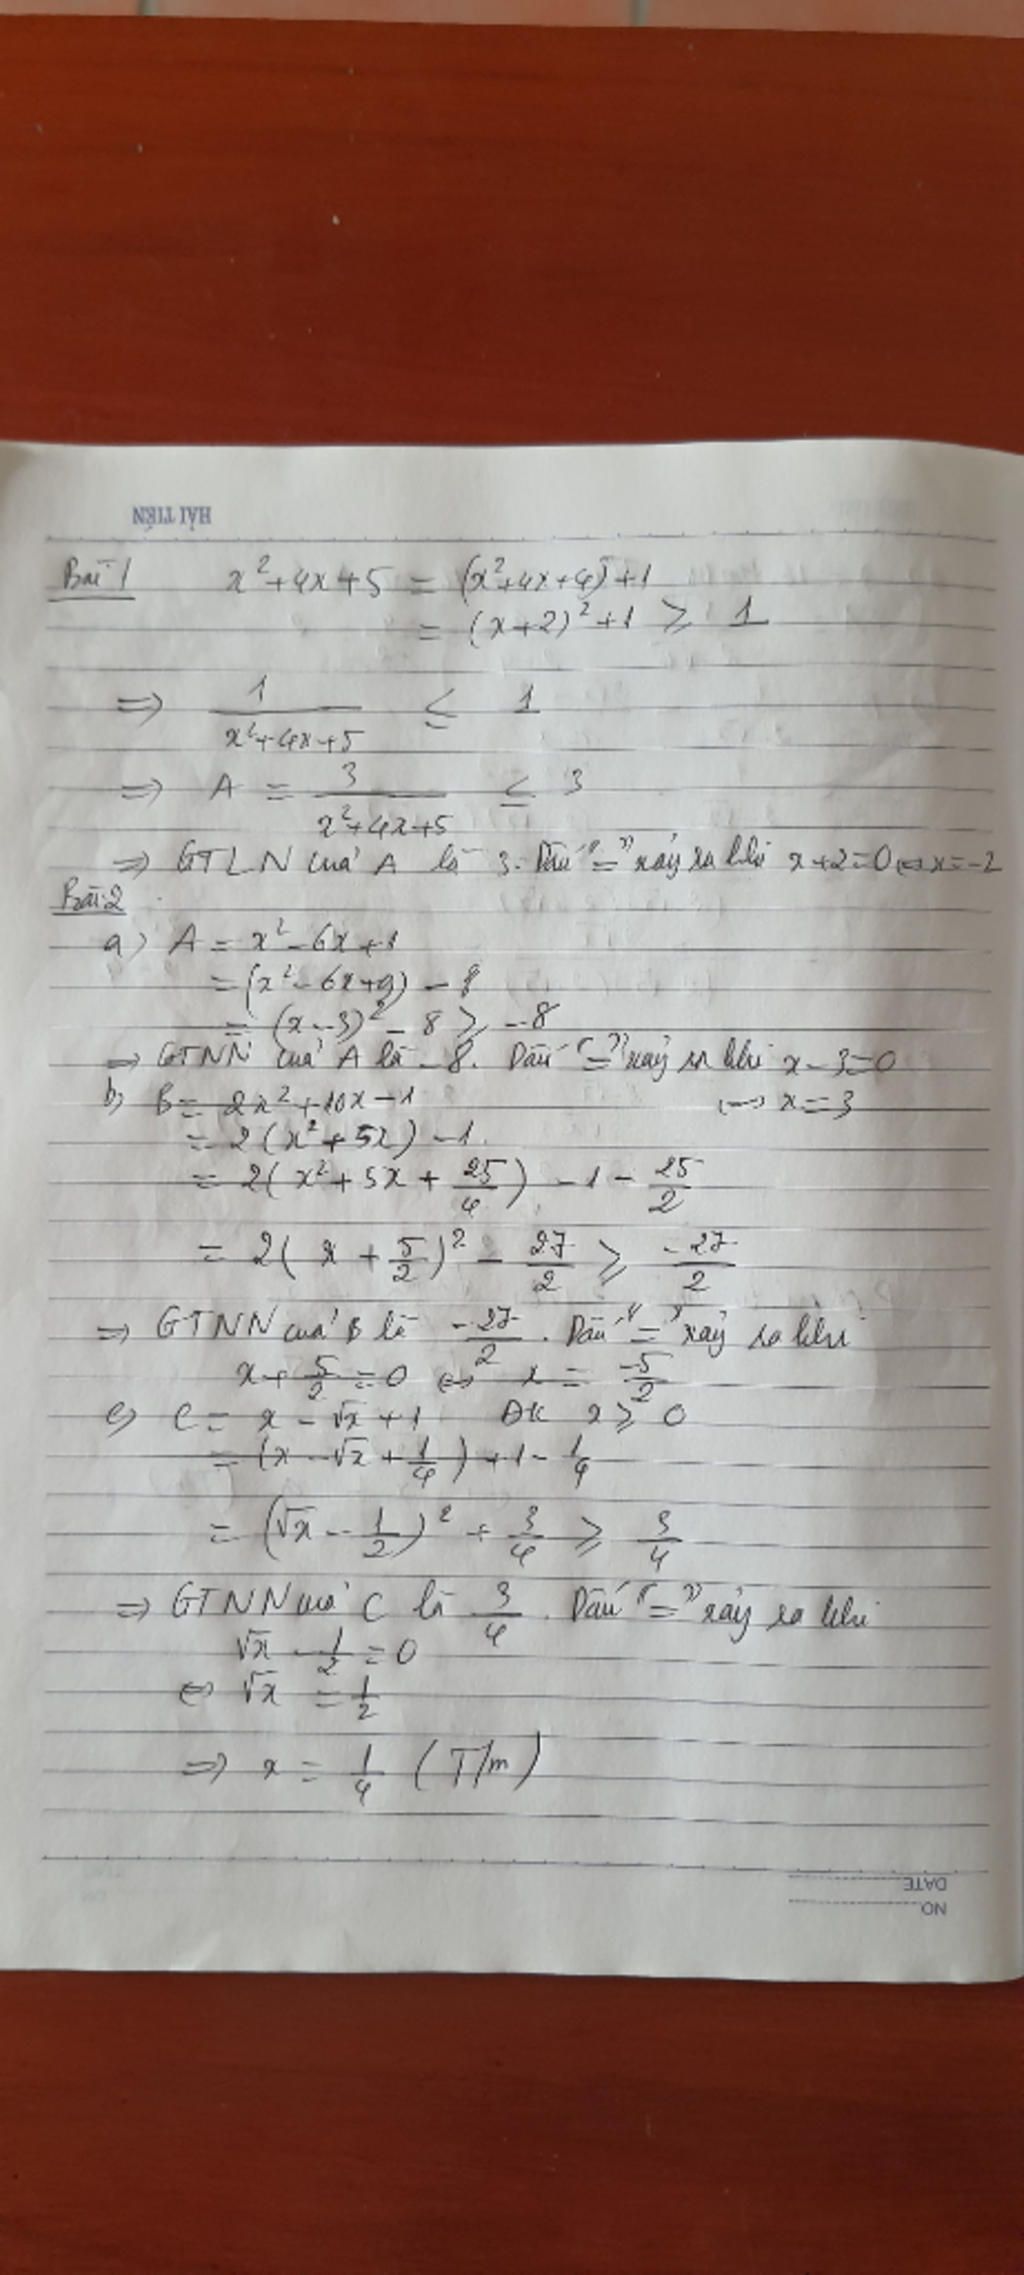 HẢI TIẾN
Bài 1 x²+4x+5 = (x²+4x+4)+1
= (x+2)²+1 ≥ 1
⇒ 1/(x²+4x+5) ≤ 1
⇒ A = 3/(x²+4x+5) ≤ 3
⇒ GTLN của A là 3. Dấu "=" xảy ra khi x+2=0 ⇔ x=-2
Bài 2
a) A = x²-6x+1
= (x²-6x+9) - 8
= (x-3)² - 8 ≥ -8
⇒ GTNN của A là -8. Dấu "=" xảy ra khi x-3=0
⇔ x=3
b) B = 2x²+10x-1
= 2(x²+5x) -1
= 2(x²+5x+25/4) -1 - 25/2
= 2(x+5/2)² - 27/2 ≥ -27/2
⇒ GTNN của B là -27/2. Dấu "=" xảy ra khi
x+5/2=0 ⇔ x = -5/2
c) C = x - √x +1 ĐK x ≥ 0
= (x-√x+1/4)+1-1/4
= (√x - 1/2)² + 3/4 ≥ 3/4
⇒ GTNN của C là 3/4. Dấu "=" xảy ra khi
√x - 1/2 = 0
⇔ √x = 1/2
⇒ x = 1/4 (T/m)
DATE
NO